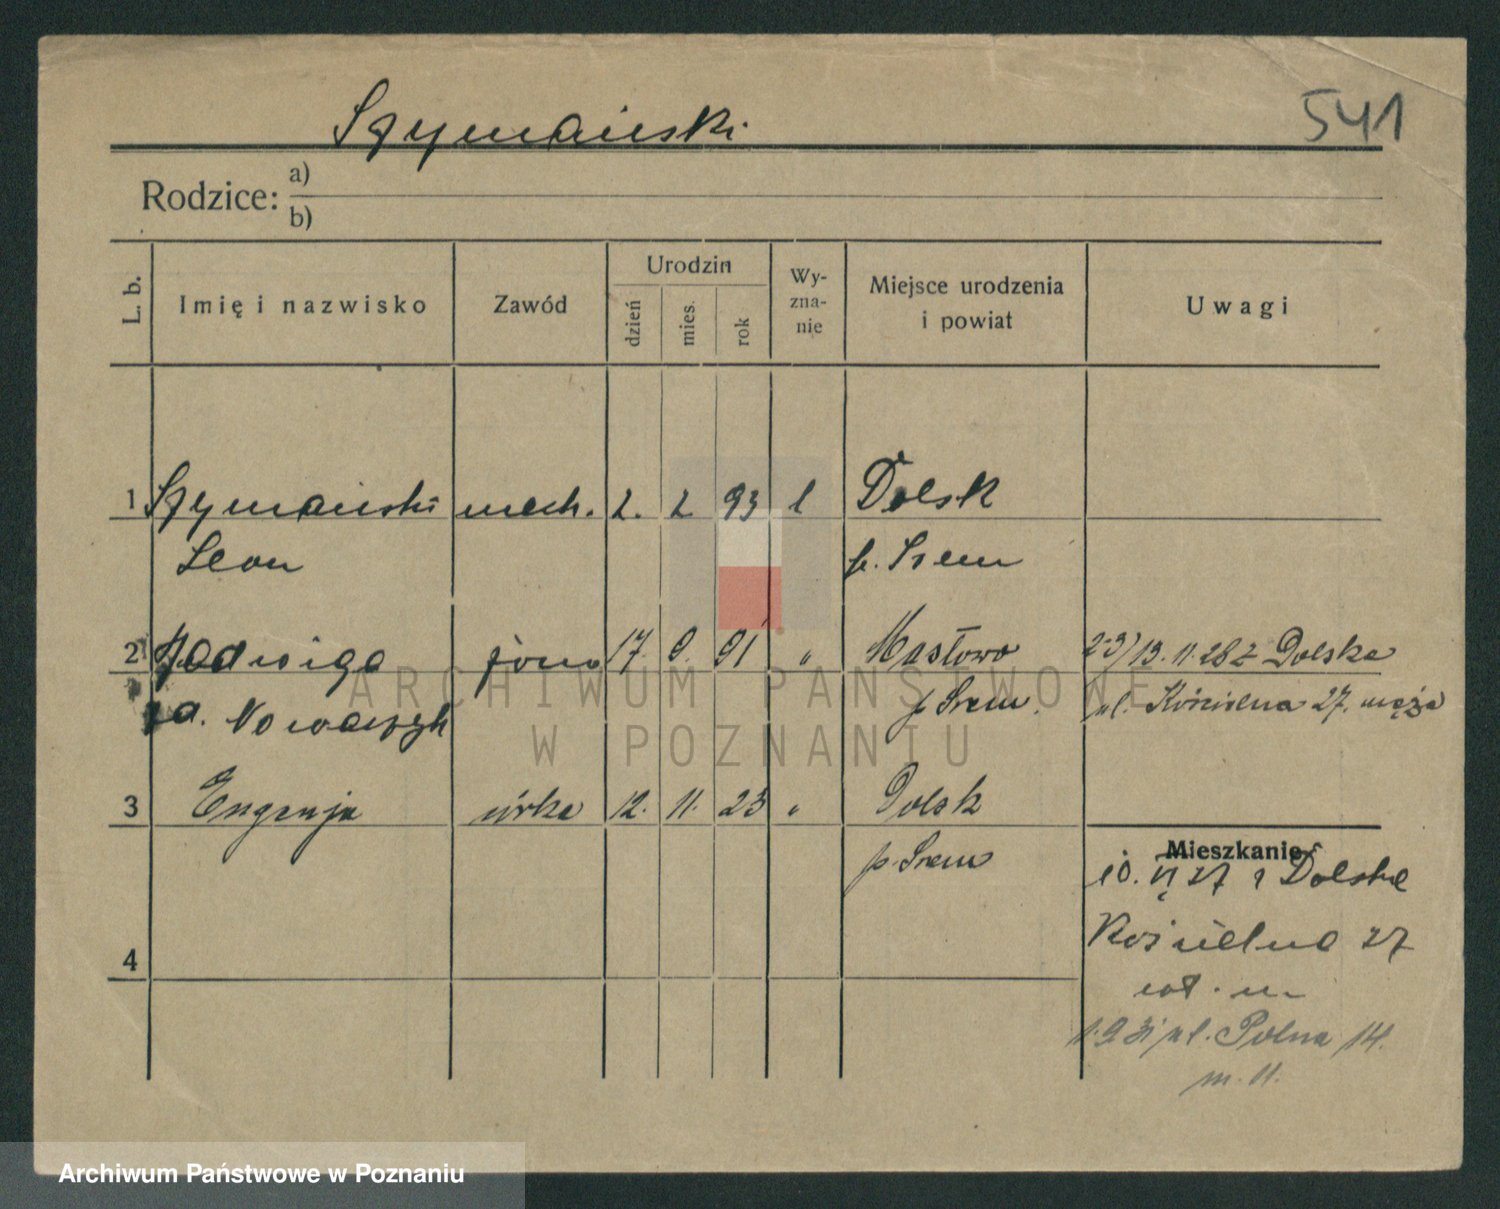 Szymański
541
Rodzice: a)
b)
L. b. Imię i nazwisko Zawód Urodzin dzień mies. rok Wy-zna-nie Miejsce urodzenia i powiat Uwagi
1 Szymański mech. 2. 2 93 k Dolsk
Leon p. Śrem
2 Jadwiga żona 17. 9. 91 " Masłowo 23/13.11.28 z Dolska
ur. Nowaczyk p Śrem. ul. Kościelna 27. męża
3 Eugenja córka 12. 11. 23 " Dolsk
p. Śrem
Mieszkanie
10. VI 27 z Dolska
4
Kościelna 27
m
1.9 31 ul. Polna 14.
m. 11.
ARCHIWUM PAŃSTWOWE
W POZNANIU
Archiwum Państwowe w Poznaniu